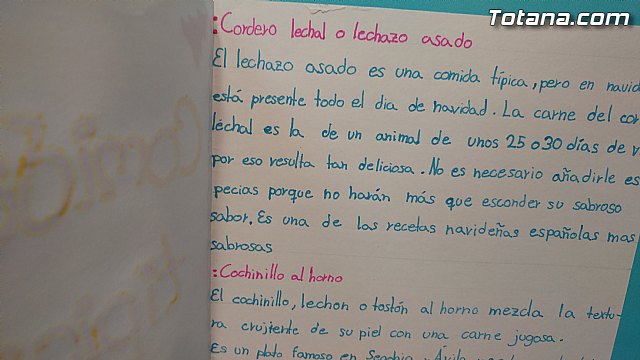 Totana.com
:Cordero lechal o lechazo asado
El lechazo asado es una comida típica, pero en navid
está presente todo el dia de navidad. La carne del cor
léchal es la de un animal de unos 25 o 30 días de v
por eso resulta tan deliciosa. No es necesario añadirle es
pecias porque no harán más que esconder su sabroso
sabor. Es una de las recetas navideñas españolas mas
sabrosas
:Cochinillo al horno
El cochinillo, lechon o tostón al horno mezcla la textu-
ra crujiente de su piel con una carne jugosa.
Es un plato famoso en